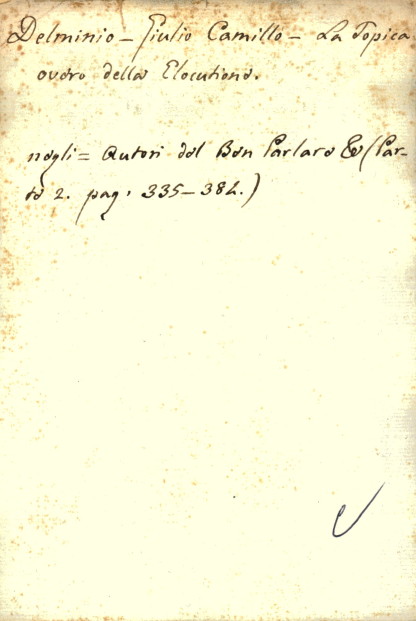 Delminio - Giulio Camillo - La Topica
overo della Elocutione.
negli = Autori del Ben Parlare &c (Par-
te 2. pag. 335-382.)